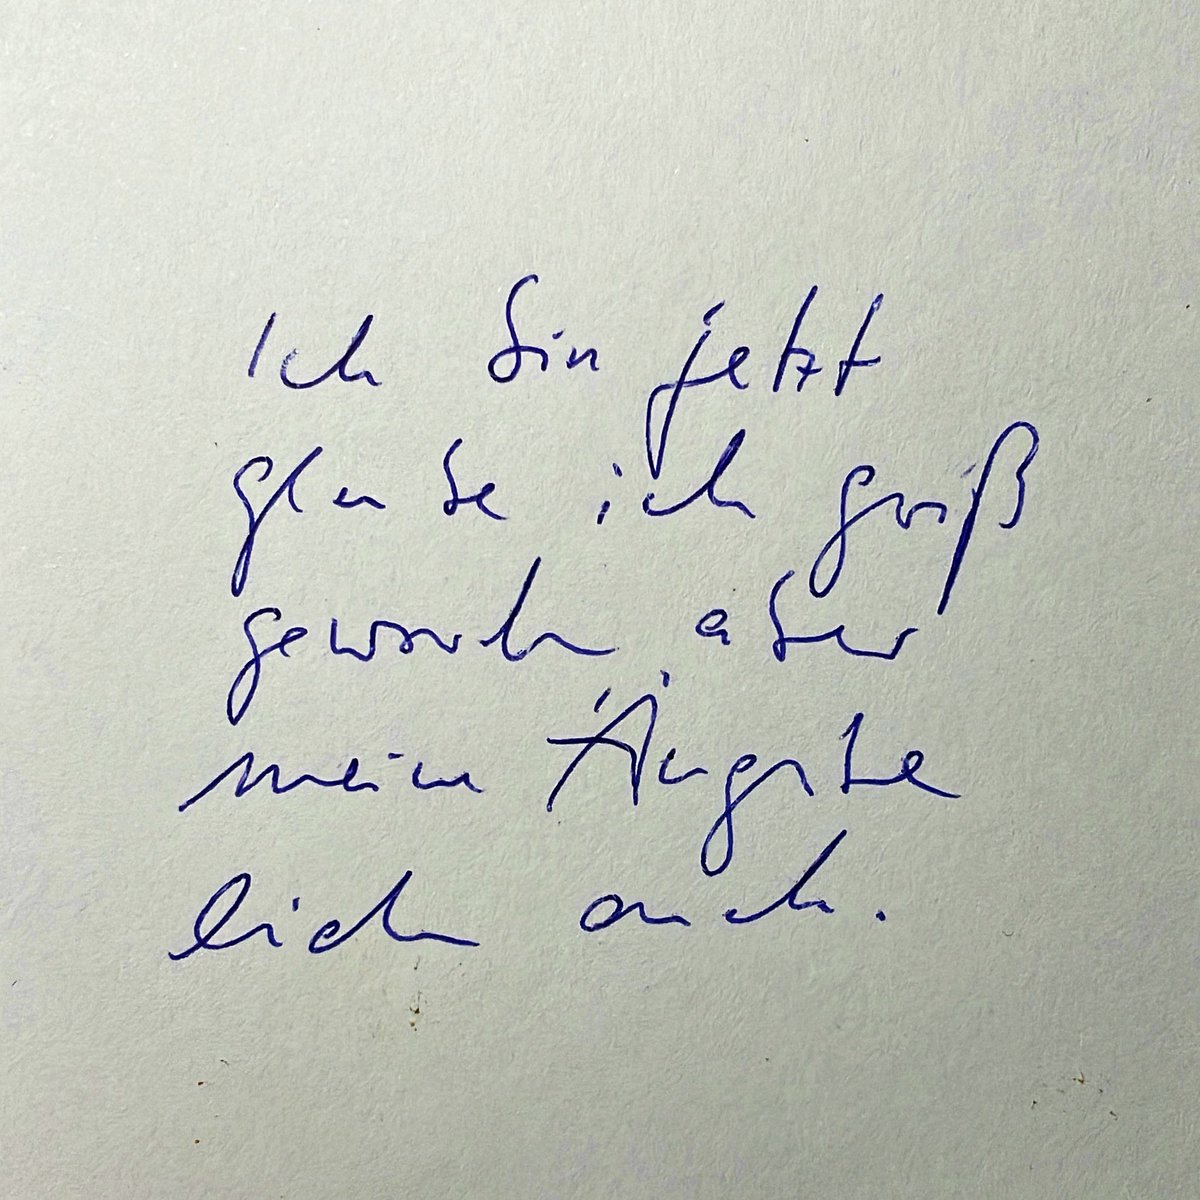 Ich bin jetzt
glaube ich groß
geworden aber
meine Ängste
leider auch.